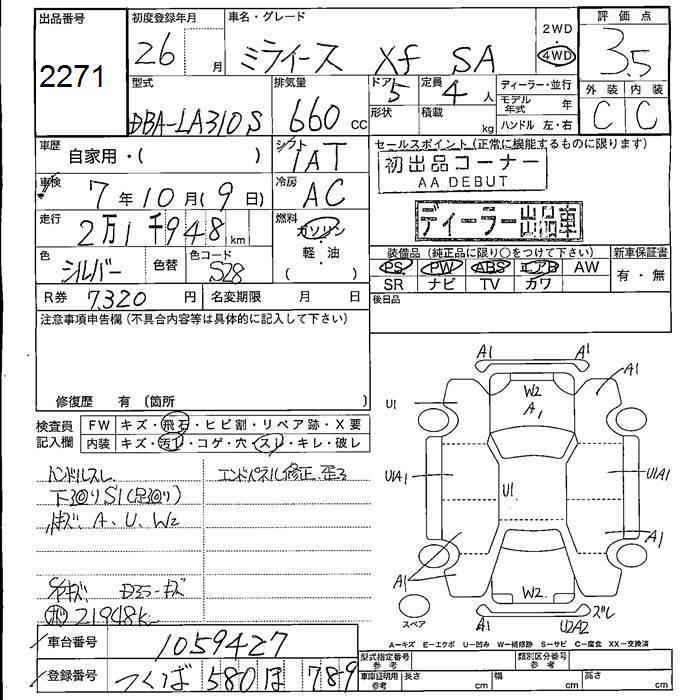 出品番号
2271
初度登録年月
26 月
車名・グレード
ミライース Xf SA
2WD
・
4WD
評価点
3.5
外装 内装
C C
型式
DBA-LA310S
排気量
660 cc
ドア
5
形状
定員
4 人
積載
kg
ディーラー・並行
モデル年式 年
ハンドル 左・右
車歴
自家用・( )
シフト
IAT
セールスポイント(正常に機能するものに限ります)
初出品コーナー
AA DEBUT
ディーラー出品車
車検
7年10月(9日)
冷房
AC
走行
2万1千948km
燃料
ガソリン
・
軽・油
( )
色
シルバー
色替
色コード
S28
装備品(純正品に限り〇をつけて下さい)
PS PW ABS エアB AW
SR ナビ TV カワ
新車保証書
有・無
R券 7,320 円
名変期限 月 日
後日品
注意事項申告欄(不具合内容等は具体的に記入して下さい)
修復歴 有(箇所 )
検査員記入欄
FW キズ・飛石・ヒビ割・リペア跡・X要
内装 キズ・汚れ・コゲ・穴・スレ・キレ・破レ
ハンドルスレ
下回りS1(足回り)
キズ、A、U、W2
エンドパネル修正、歪み
21948k
A1 A1
W2
A1
A1
U1
U1A1
U1
U1A1
A1
A1
W2
スペア
A1 U2A2
ズレ
A=キズ E=エクボ U=凹み W=補修跡 S=サビ C=腐食 XX=交換済
車台番号 1059427
登録番号 つくば 580 ほ 789
型式指定番号
参考
類別区分番号
参考
車庫証明用
参考
長さ cm
幅 cm
高さ cm